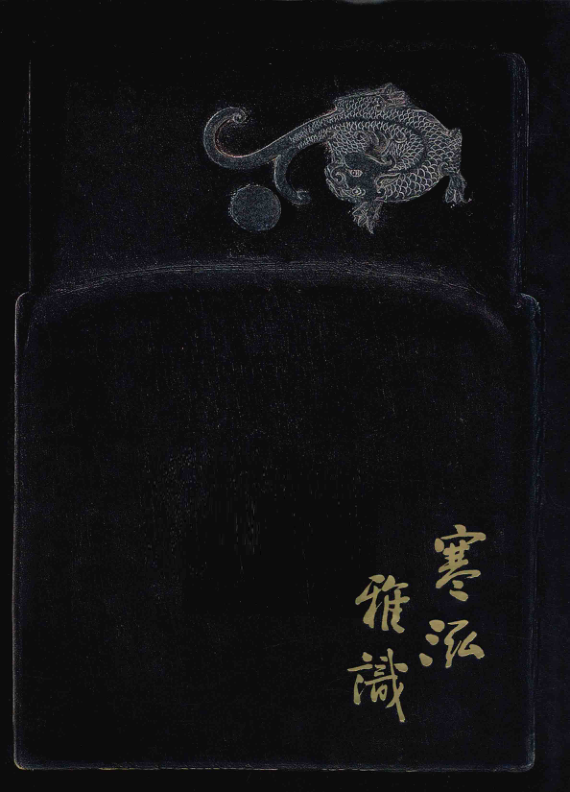 寒泓
雅識